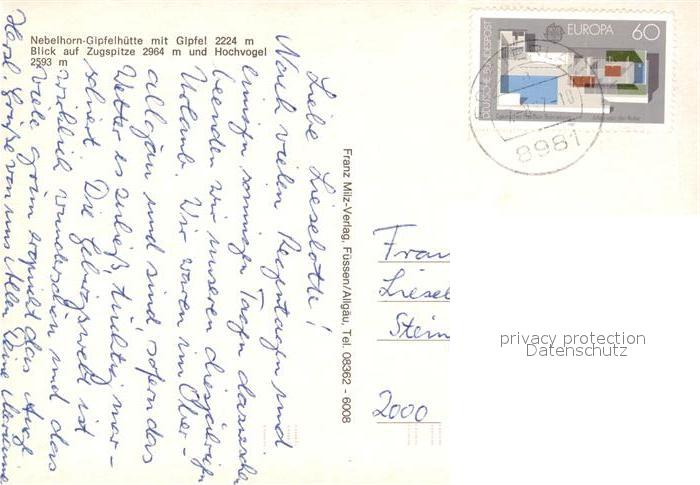 Nebelhorn-Gipfelhütte mit Gipfel 2224 m
Blick auf Zugspitze 2964 m und Hochvogel
2593 m
Liebe Lieselotte!
Nach vielen Regentagen und
einigen sonnigen Tagen dazwischen
beenden wir unseren diesjährigen
Urlaub. Wir waren im Ober-
allgäu und sind, sofern das
Wetter es zuließ, tüchtig mar-
schiert. Die Gebirgswelt ist
wirklich wunderschön und das
viele grün erquickt das Auge.
Herzl. Grüße von uns Allen Deine Marianne
Franz Milz-Verlag, Füssen/Allgäu, Tel. 08362 - 6008
DEUTSCHE BUNDESPOST
EUROPA 60
8981
Frau
Liesel
Stein
2000
privacy protection
Datenschutz